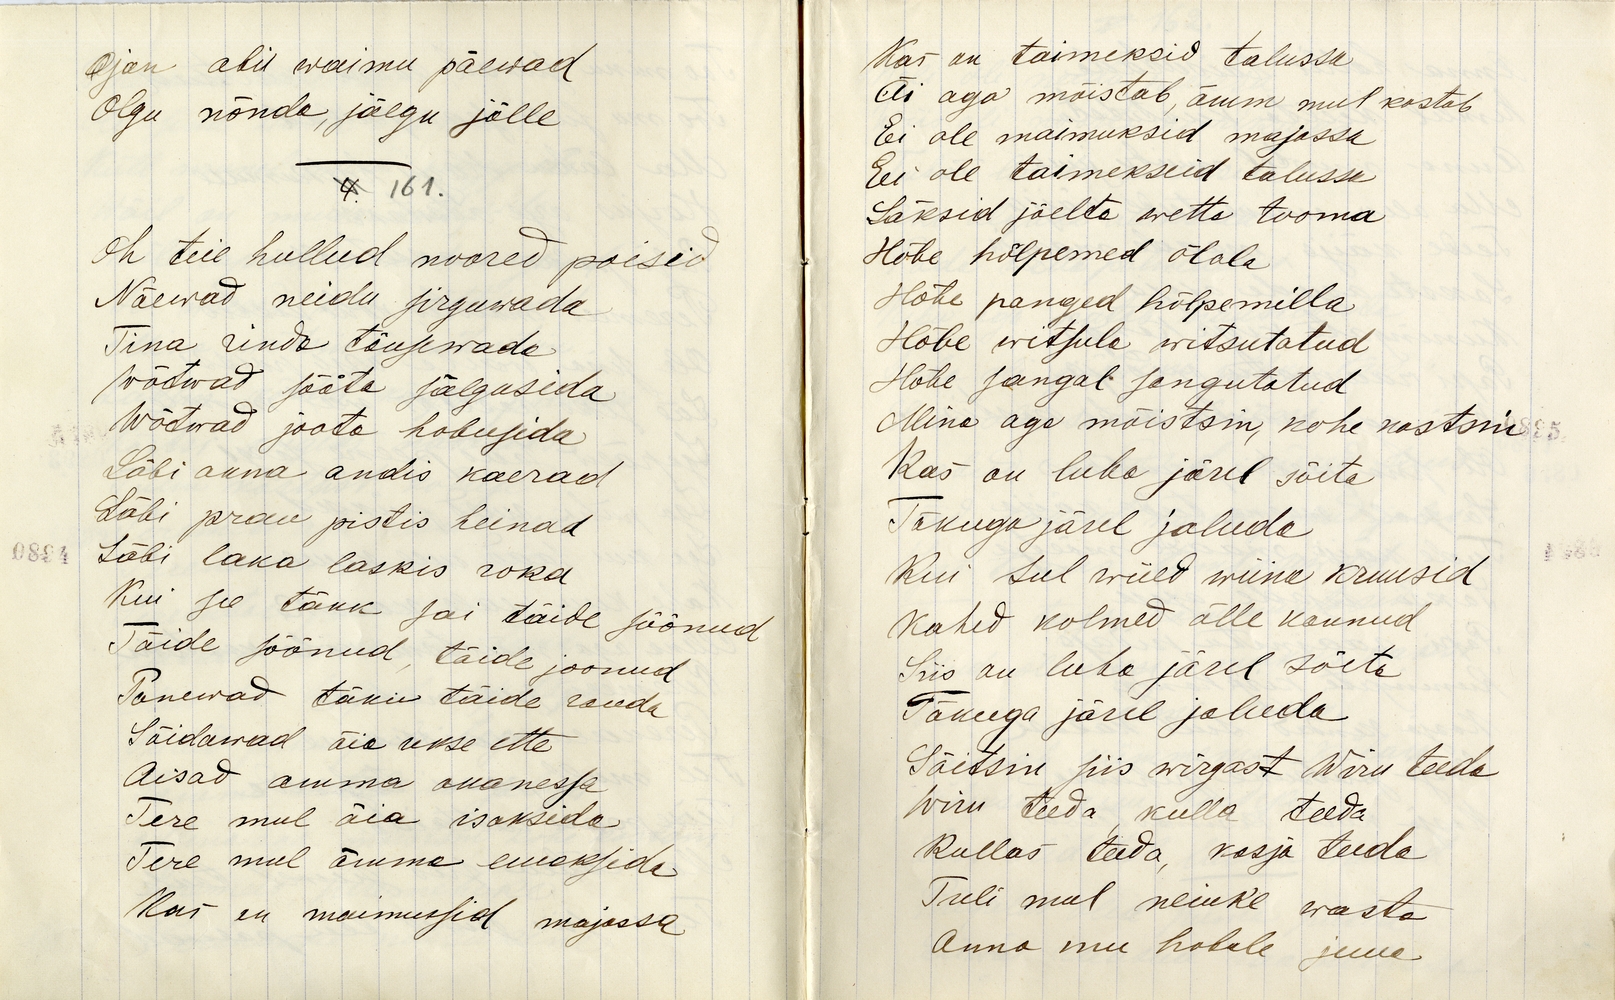 Ojan abil waimu päewad
Olgu nõnda, jälgu jälle
4. 161.
Oh teie hullud noored poisid
Näewad neidu sirguwada
Tina rinda tõusewada
Wõtwad sööta sälgusida
Wõtwad joota hobusida
Läbi auna andis kaerad
Läbi prau pistis heinad
Läbi laka laskis roka
Kui se täkk sai täide söönud
Täide söönud, täide joonud
Panewad täku täide rauda
Sõidawad äia ukse ette
Aisad amma auanessa
Tere mul äia isaksida
Tere mul ämma emaksida
Kas on maimussid majassa
Kas on taimeksid talussa
Äi aga mõistab, ämm mul kostab
Ei ole maimuksid majassa
Ei ole taimekseid talussa
Läksid jõelta wetta tooma
Hõbe hõlpemed õlala
Hõbe panged hõlpemilla
Hõbe witsula witsutatud
Hõbe sangal sangutatud
Mina aga mõistsin, kohe kostsin
Kas on luba järel sõita
Täkuga järel jaluda
Kui sul wiied wiina kruusid
Kahed kolmed õlle kannud
Siis on luba järel sõita
Täkuga järel jaluda
Sõitsin siis wirgast Wiru teeda
Wiru teeda, kulla teeda
Kullas teeda, kasja teeda
Tuli mul neiuke wasta
Anna mu hobule juua
4380